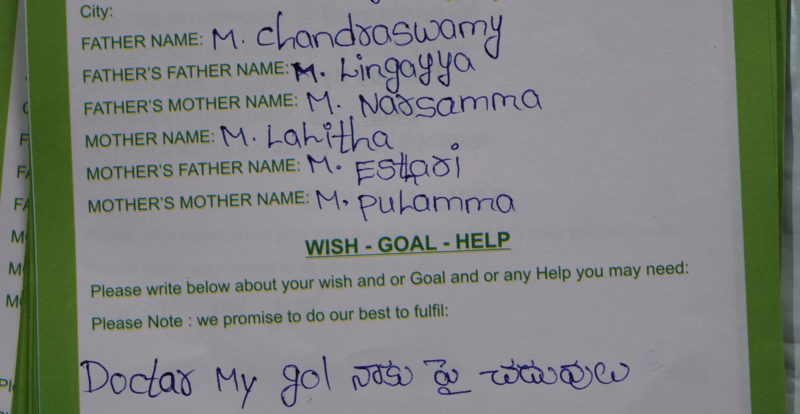 City:
FATHER NAME: M. Chandraswamy
FATHER'S FATHER NAME: M. Lingayya
FATHER'S MOTHER NAME: M. Narsamma
MOTHER NAME: M. Lahitha
MOTHER'S FATHER NAME: M. Estari
MOTHER'S MOTHER NAME: M. pulamma
WISH - GOAL - HELP
Please write below about your wish and or Goal and or any Help you may need:
Please Note : we promise to do our best to fulfil:
Doctar My gol నాకు పై చదువులు